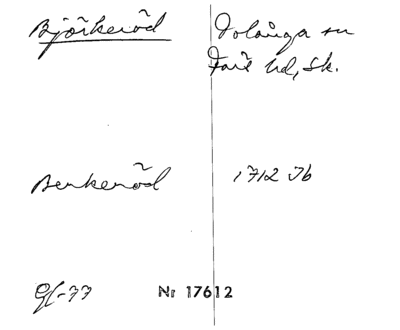 Björkeröd Tolånga sn
Färs hd, Sk.
Berkeröd 1712 Jb
Gf-77 Nr 17612